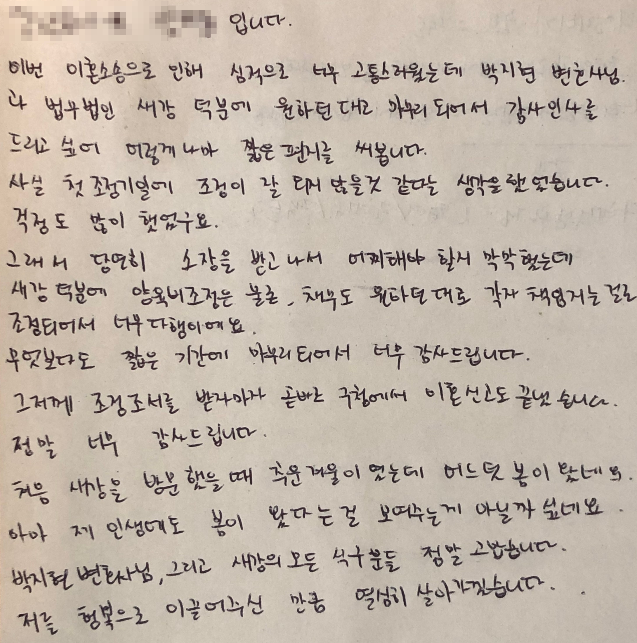 입니다.
이번 이혼소송으로 인해 심적으로 너무 고통스러웠는데 박지현 변호사님.
과 법무법인 새강 덕분에 원하던 대로 마무리 되어서 감사인사를
드리고 싶어 이렇게나마 짧은 편지를 써봅니다.
사실 첫 조정기일에 조정이 잘 되지 않을것 같다는 생각을 했었습니다.
걱정도 많이 했었구요.
그래서 당연히 소장을 받고 나서 어찌해야 할지 막막했는데
새강 덕분에 양육비조정은 물론, 채무도 원하던 대로 각자 책임지는 걸로
조정되어서 너무 다행이에요.
무엇보다도 짧은 기간에 마무리 되어서 너무 감사드립니다.
그저께 조정조서를 받자마자 곧바로 구청에서 이혼신고도 끝냈습니다.
정말 너무 감사드립니다.
처음 새강을 방문했을 때 추운겨울이었는데 어느덧 봄이 왔네요.
아마 제 인생에도 봄이 왔다는걸 보여주는게 아닐까 싶네요.
박지현 변호사님, 그리고 새강의 모든 식구분들 정말 고맙습니다.
저를 행복으로 이끌어주신 만큼 열심히 살아가겠습니다.